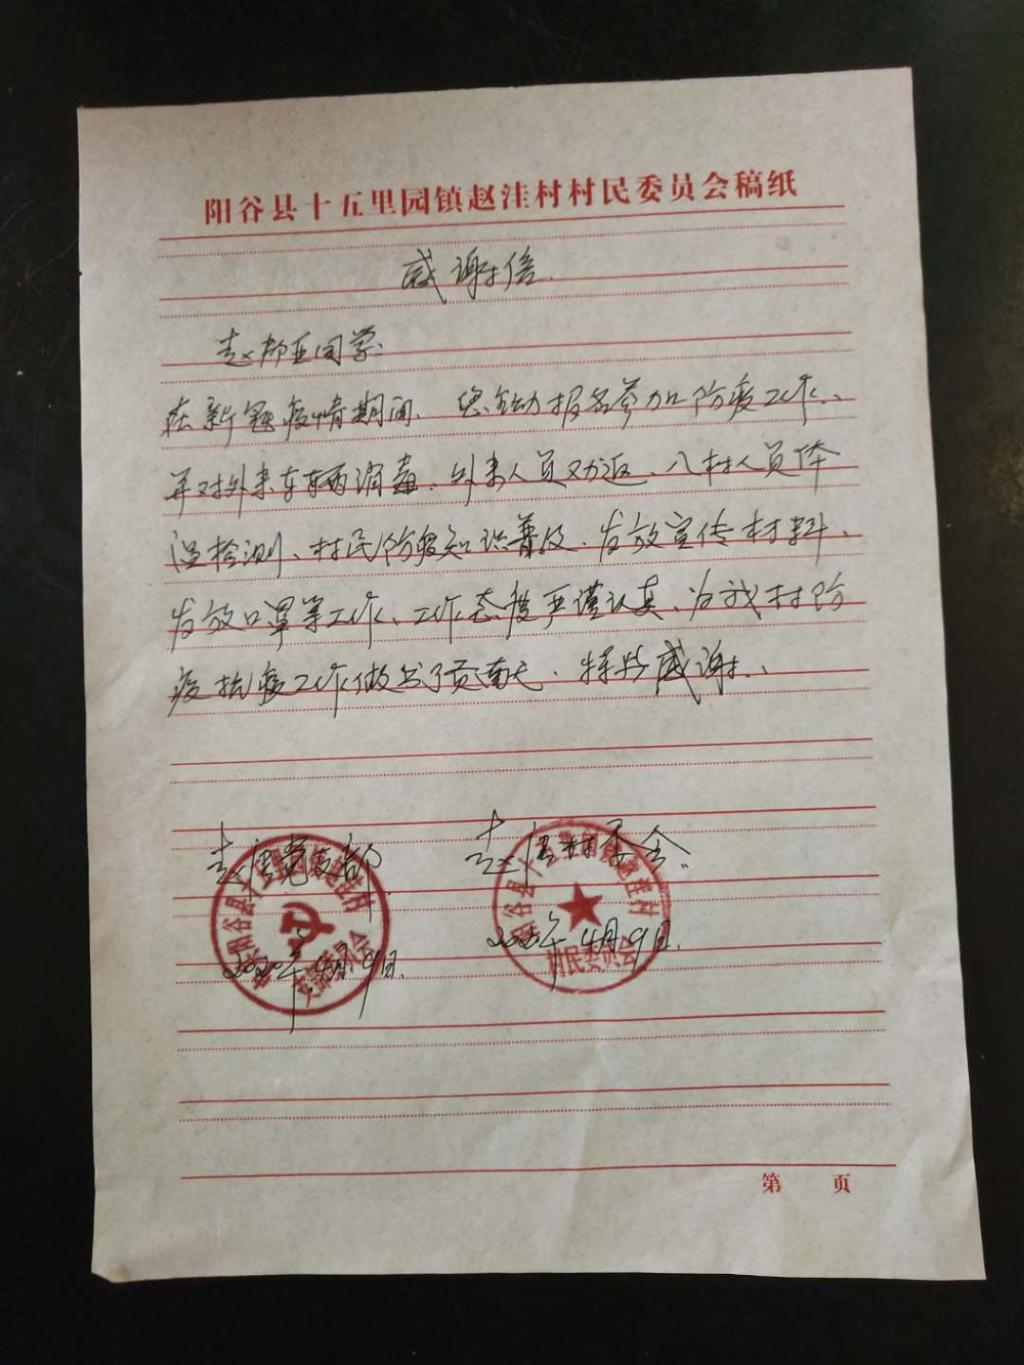 阳谷县十五里园镇赵洼村村民委员会稿纸
感谢信.
赵都亚同学:
在新冠疫情期间、您主动报名参加防疫工作、
并对外来车辆消毒、外来人员劝返、入村人员体
温检测、村民防疫知识普及、发放宣传材料、
发放口罩等工作、工作态度严谨认真、为我村防
疫抗疫工作做出了贡献、特此感谢、
赵洼党支部
赵洼村委会.
2020年4月9日.
2020年4月9日.
阳谷县十五里园镇赵洼村
支部委员会
阳谷县十五里园镇赵洼村
村民委员会
第 页